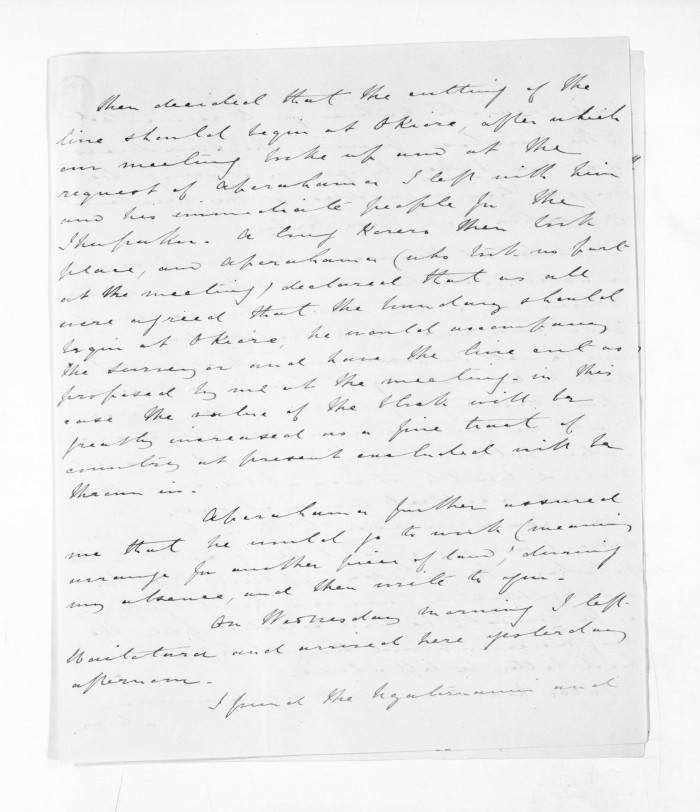 then decided that the cutting of the
line should begin at Okiore, after which
our meeting broke up and at the
request of Aperahama I left with him
and his immediate people for the
A long Korero then took
place, and Aperahama (who took no part
at the meeting) declared that as all
were agreed that the boundary should
begin at Okiore, he would accompany
the surveyor and have the line cut as
proposed by me at the meeting - in this
case the value of the block will be
greatly increased as a fine tract of
country at present excluded will be
thrown in.
Aperahama further assured
me that he would go to work (meaning
arrange for another piece of land) during
my absence, and then write to you.
On Wednesday morning I left
and arrived here yesterday
afternoon.
I found the and